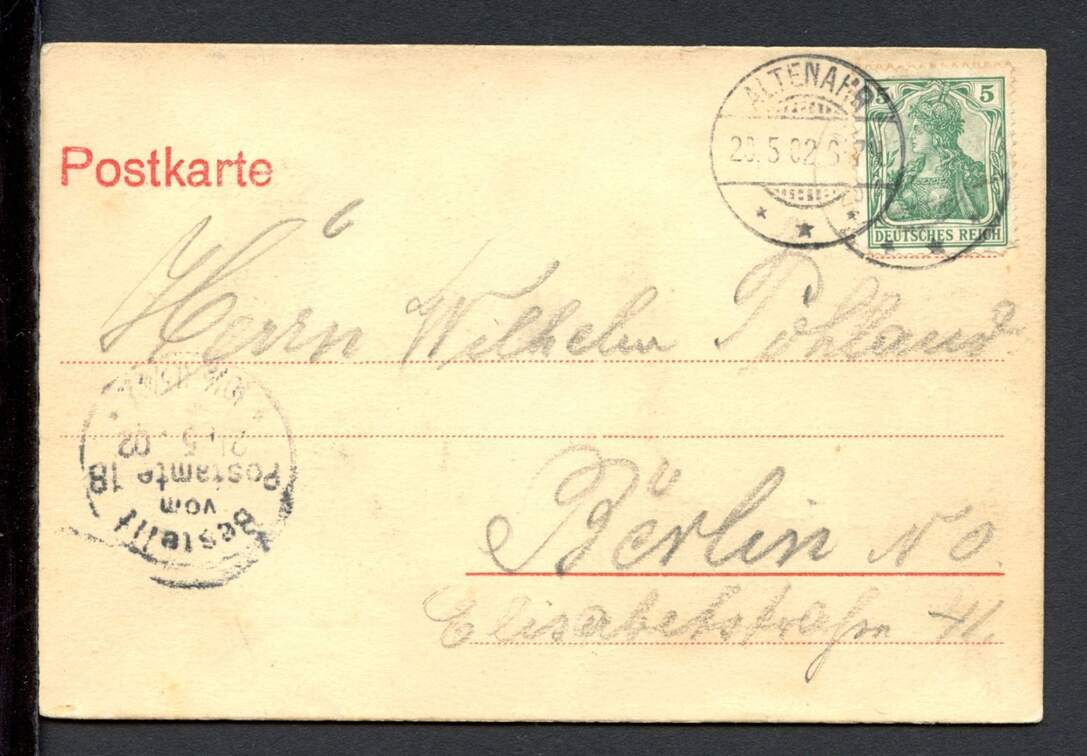 Postkarte
ALTENAHR
20.5.02
5 5
DEUTSCHES REICH
Herrn Wilhelm Pohland
Berlin NO.
Elisabethstraße 41.
Bestellt
vom
Postamte 18
21.5.02